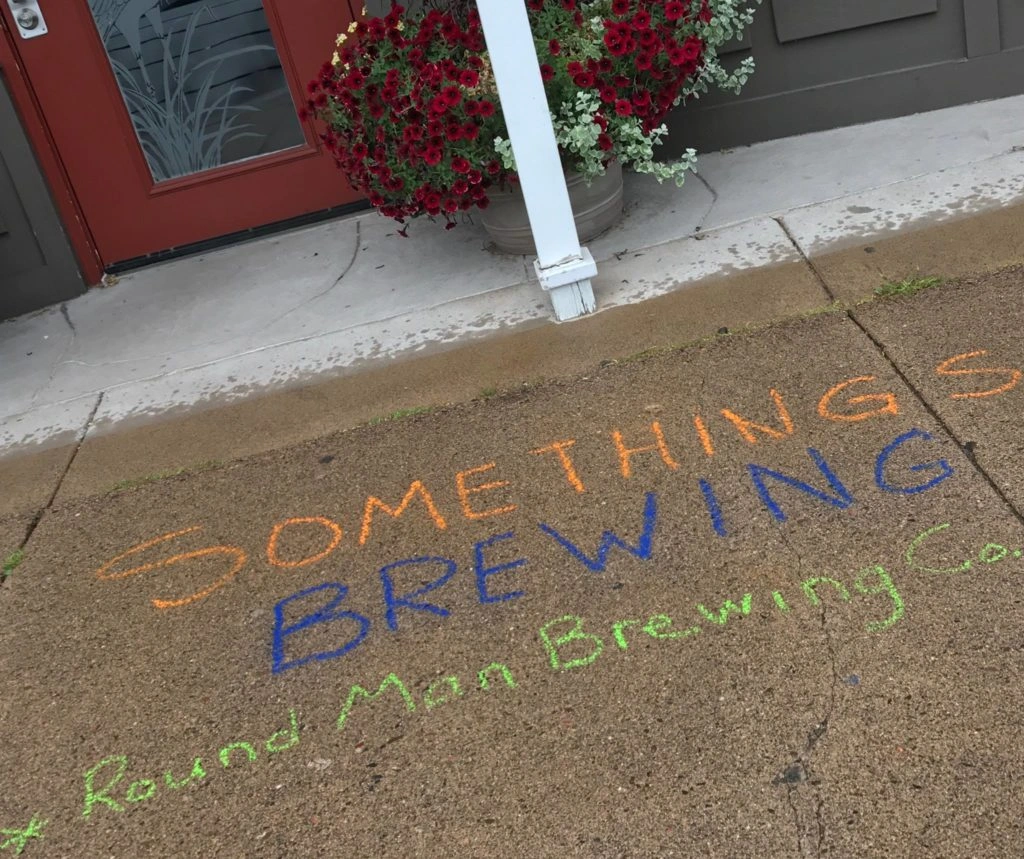 SOMETHINGS
BREWING
* Round Man Brewing Co.